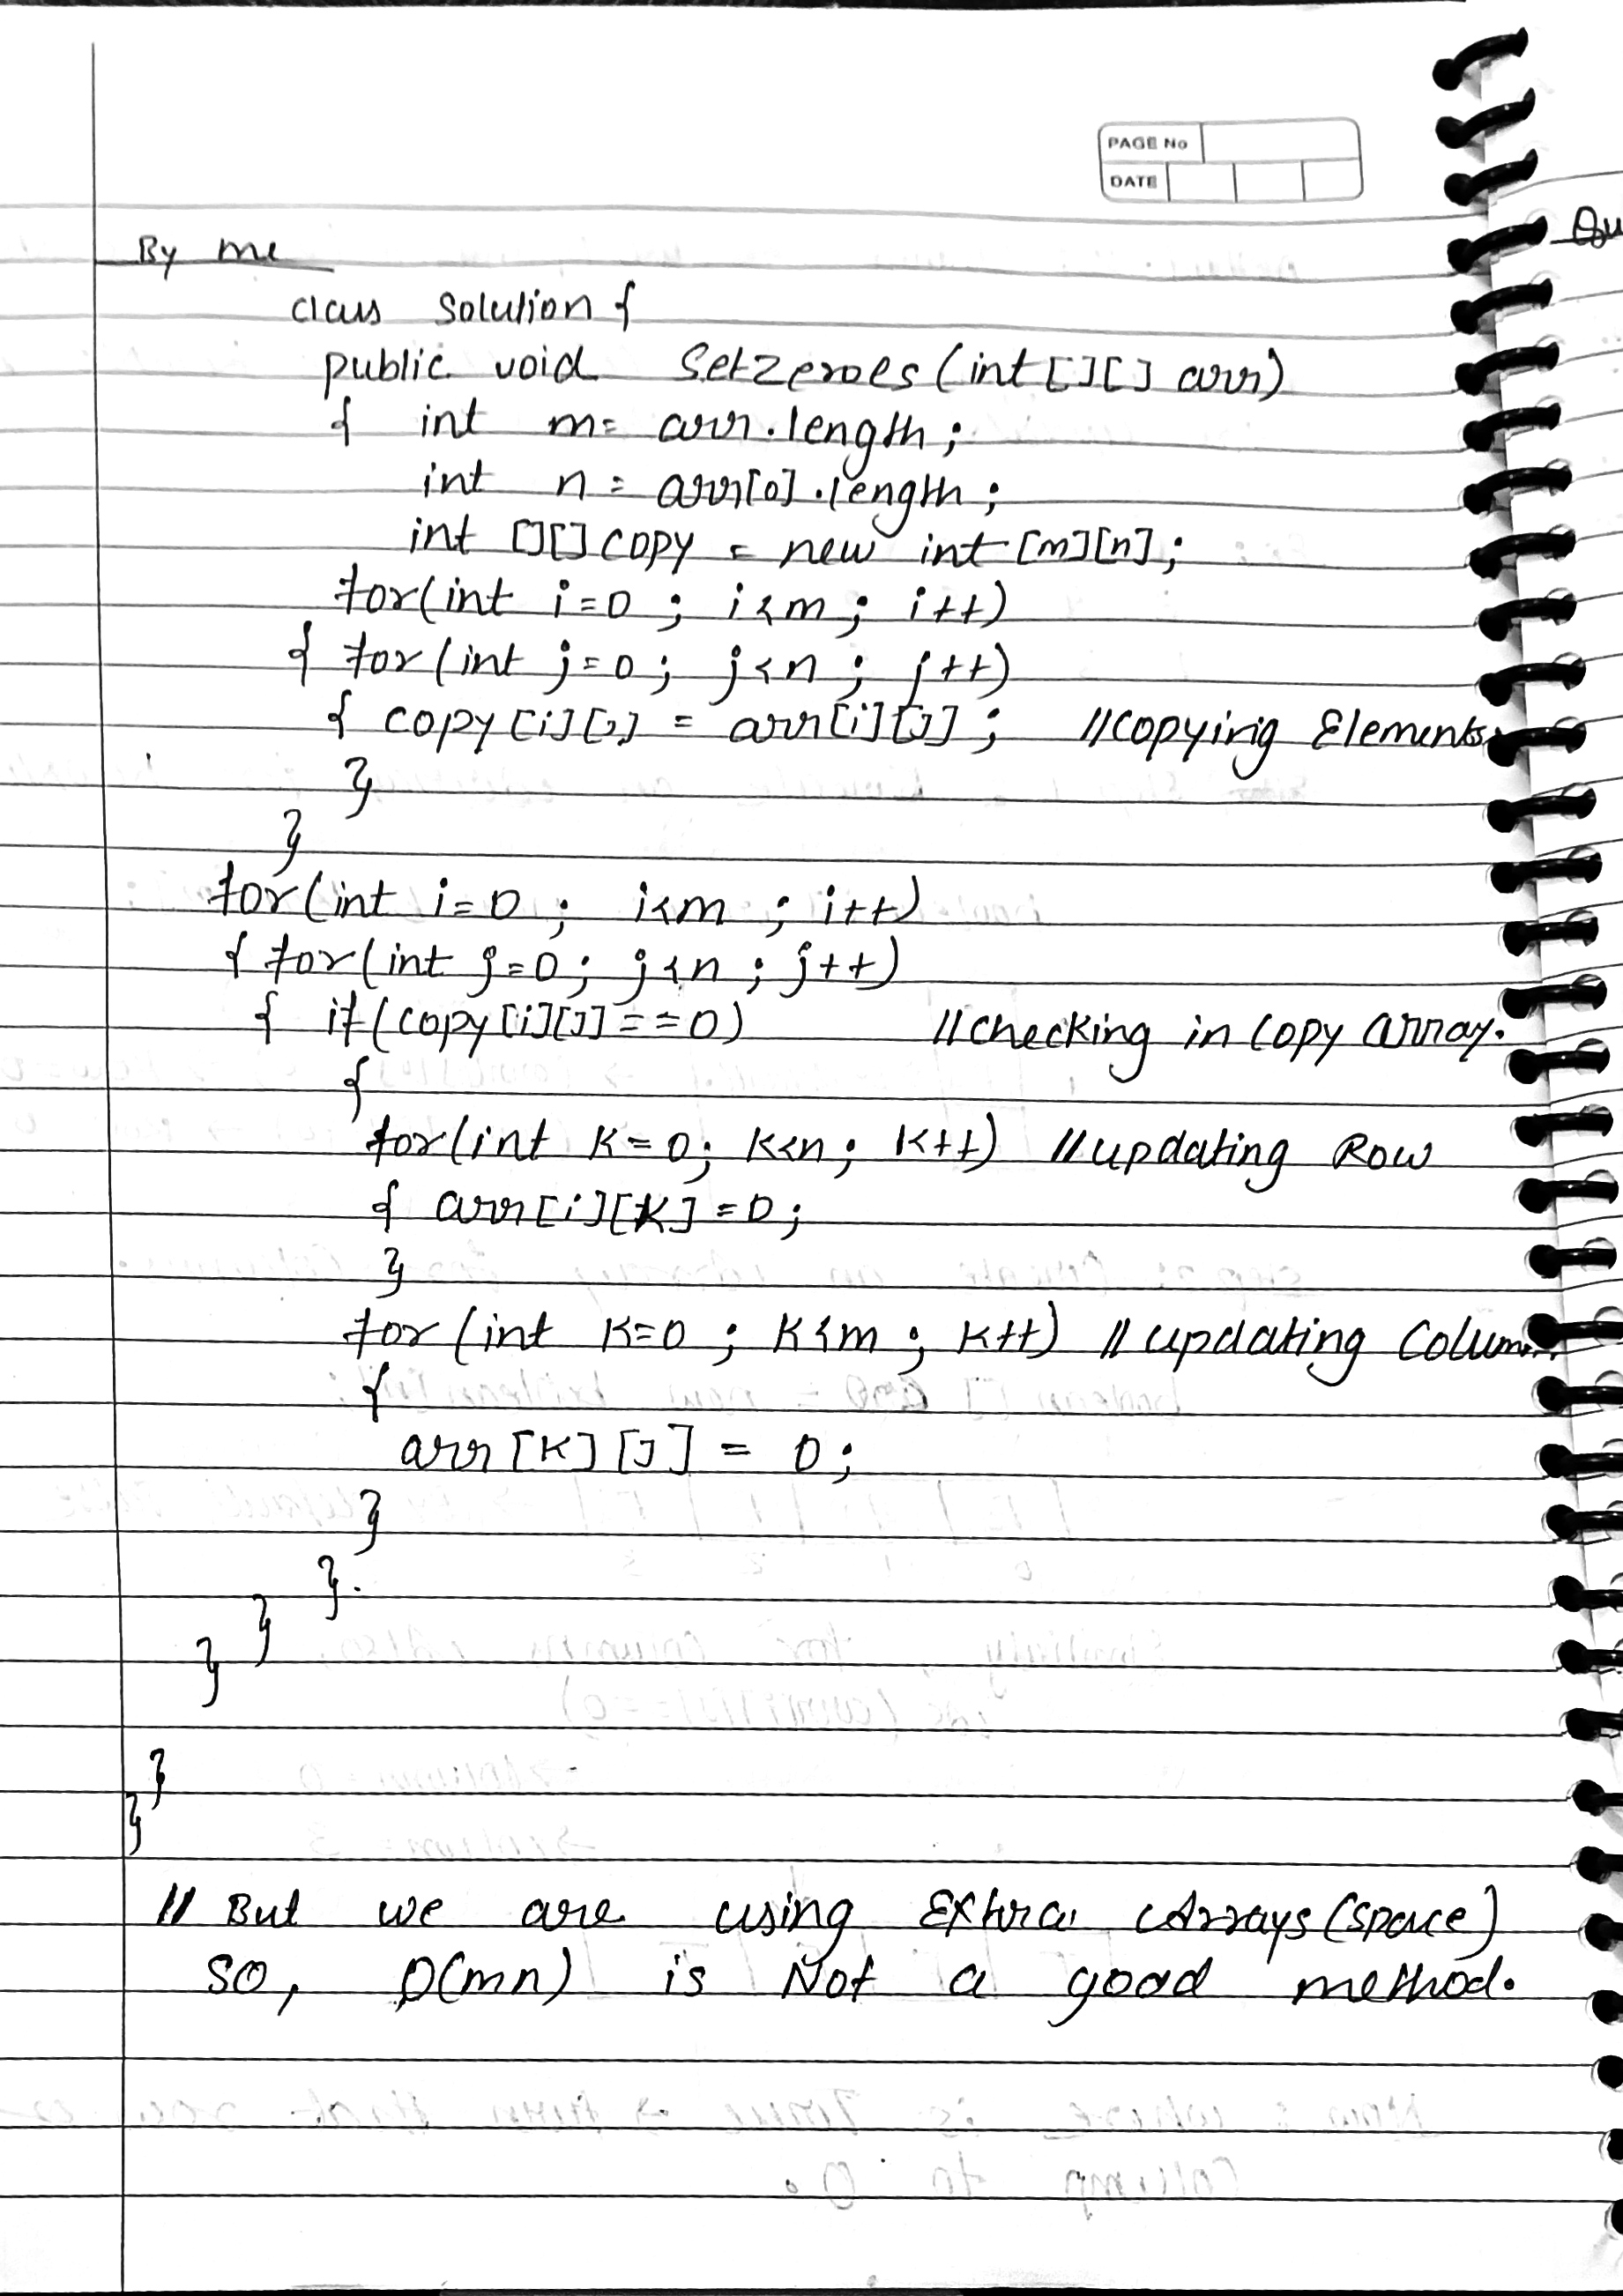 PAGE No
DATE
Qu
By me
class Solution {
public void Setzeroes (int [][] arr)
{ int m = arr.length ;
int n = arr[0].length ;
int [][] copy = new int [m][n] ;
for(int i=0 ; i<m ; i++)
{ for(int j=0 ; j<n ; j++)
{ copy[i][j] = arr[i][j] ; //copying Elements
}
}
for(int i=0 ; i<m ; i++)
{ for(int j=0 ; j<n ; j++)
{ if(copy[i][j]==0) //checking in copy array.
{
for(int k=0 ; k<n ; k++) //updating Row
{ arr[i][k]=0 ;
}
for(int k=0 ; k<m ; k++) //updating Colum
{
arr[k][j] = 0 ;
}
}.
}
}
}
}
// But we are using Extra Arrays (space)
so, O(mn) is Not a good method.